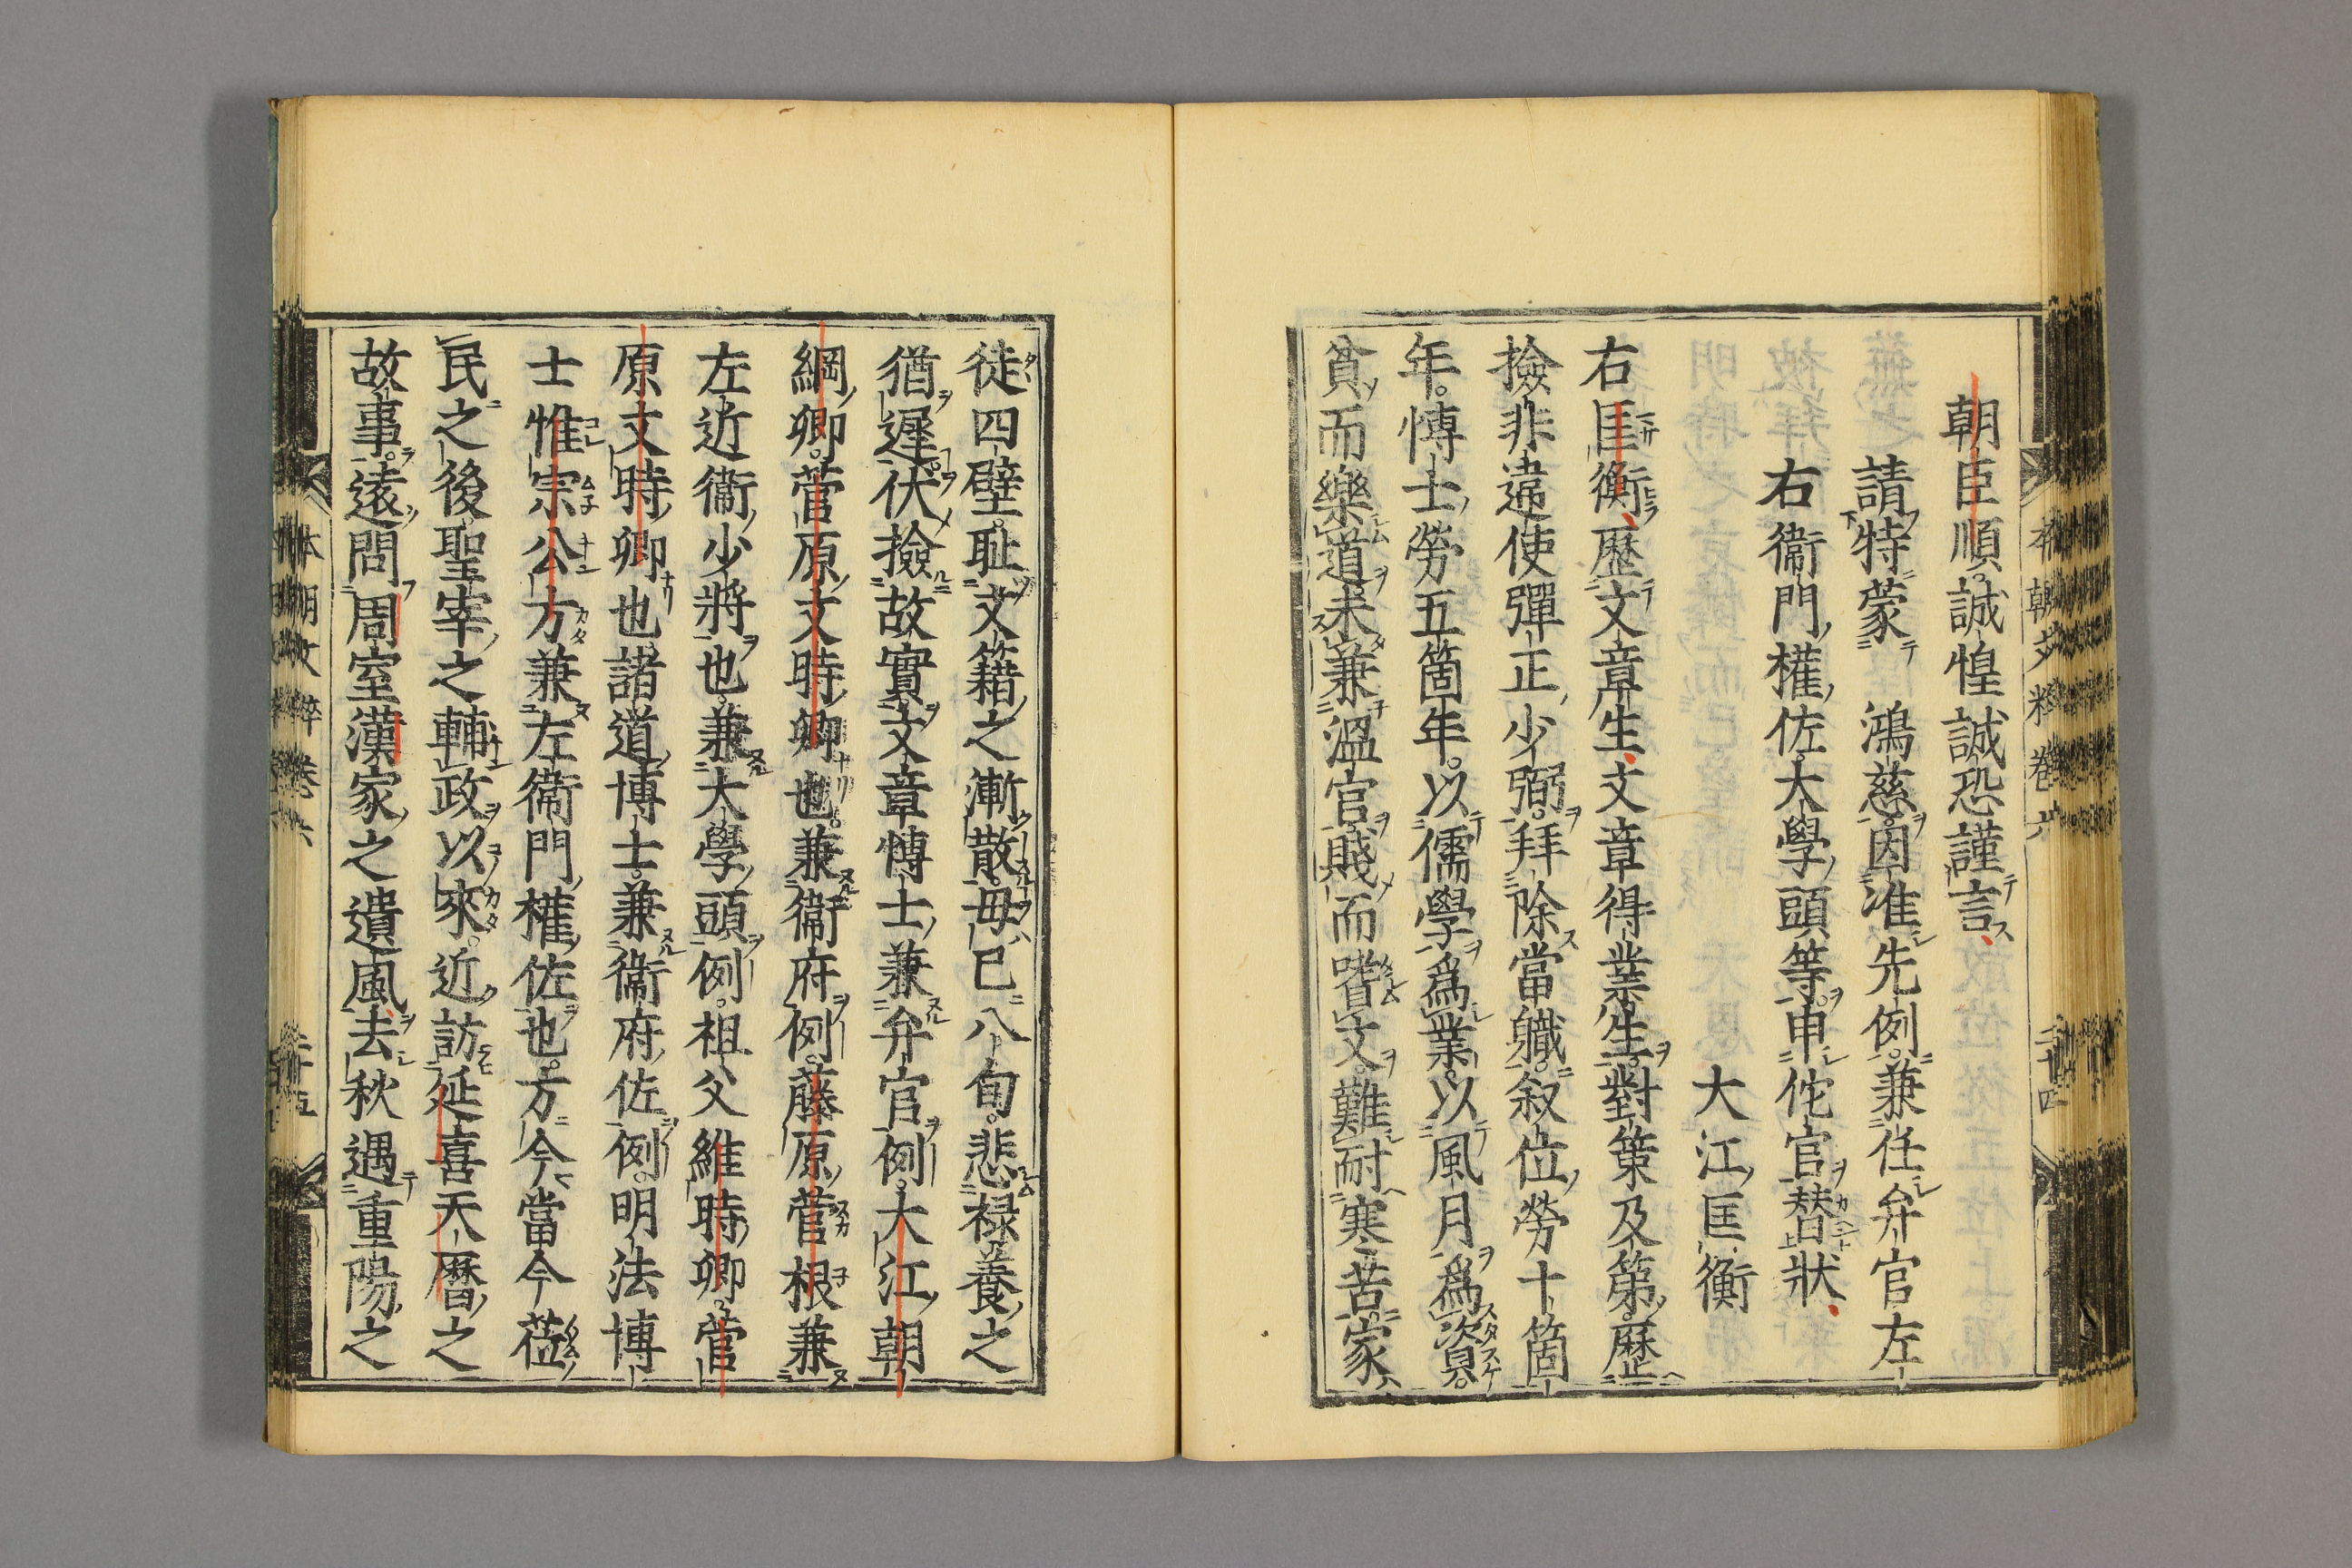 朝臣順。誠惶誠恐謹言
請特蒙　鴻慈。因准先例。兼任弁官左
右衞門權佐。大學頭等。申佗官替狀
大江匡衡
右匡衡。歷文章生。文章得業生。對策及第。歷
撿非違使彈正少弼。拜除當軄。叙位勞十箇
年。愽士勞五箇年。以儒學爲業。以風月爲資。
貧而樂道。未兼溫官。賤而嗜文。難耐寒苦。家
徒四壁。耻文籍之漸散。毋已八旬。悲禄養之
猶遲。伏撿故實。文章愽士兼弁官例。大江朝
綱卿。菅原文時卿也。兼衞府例。藤原菅根兼
左近衞少將也。兼大學頭例。祖父維時卿。菅
原文時卿也。諸道博士。兼衞府佐例。明法博
士惟宗公方兼左衞門權佐也。方今當今莅
民之後。聖宰之輔政以來。近訪延喜天曆之
故事。遠問周室漢家之遺風。去秋遇重陽之
本朝文粹卷六
二十四
本朝文粹卷六
二十五